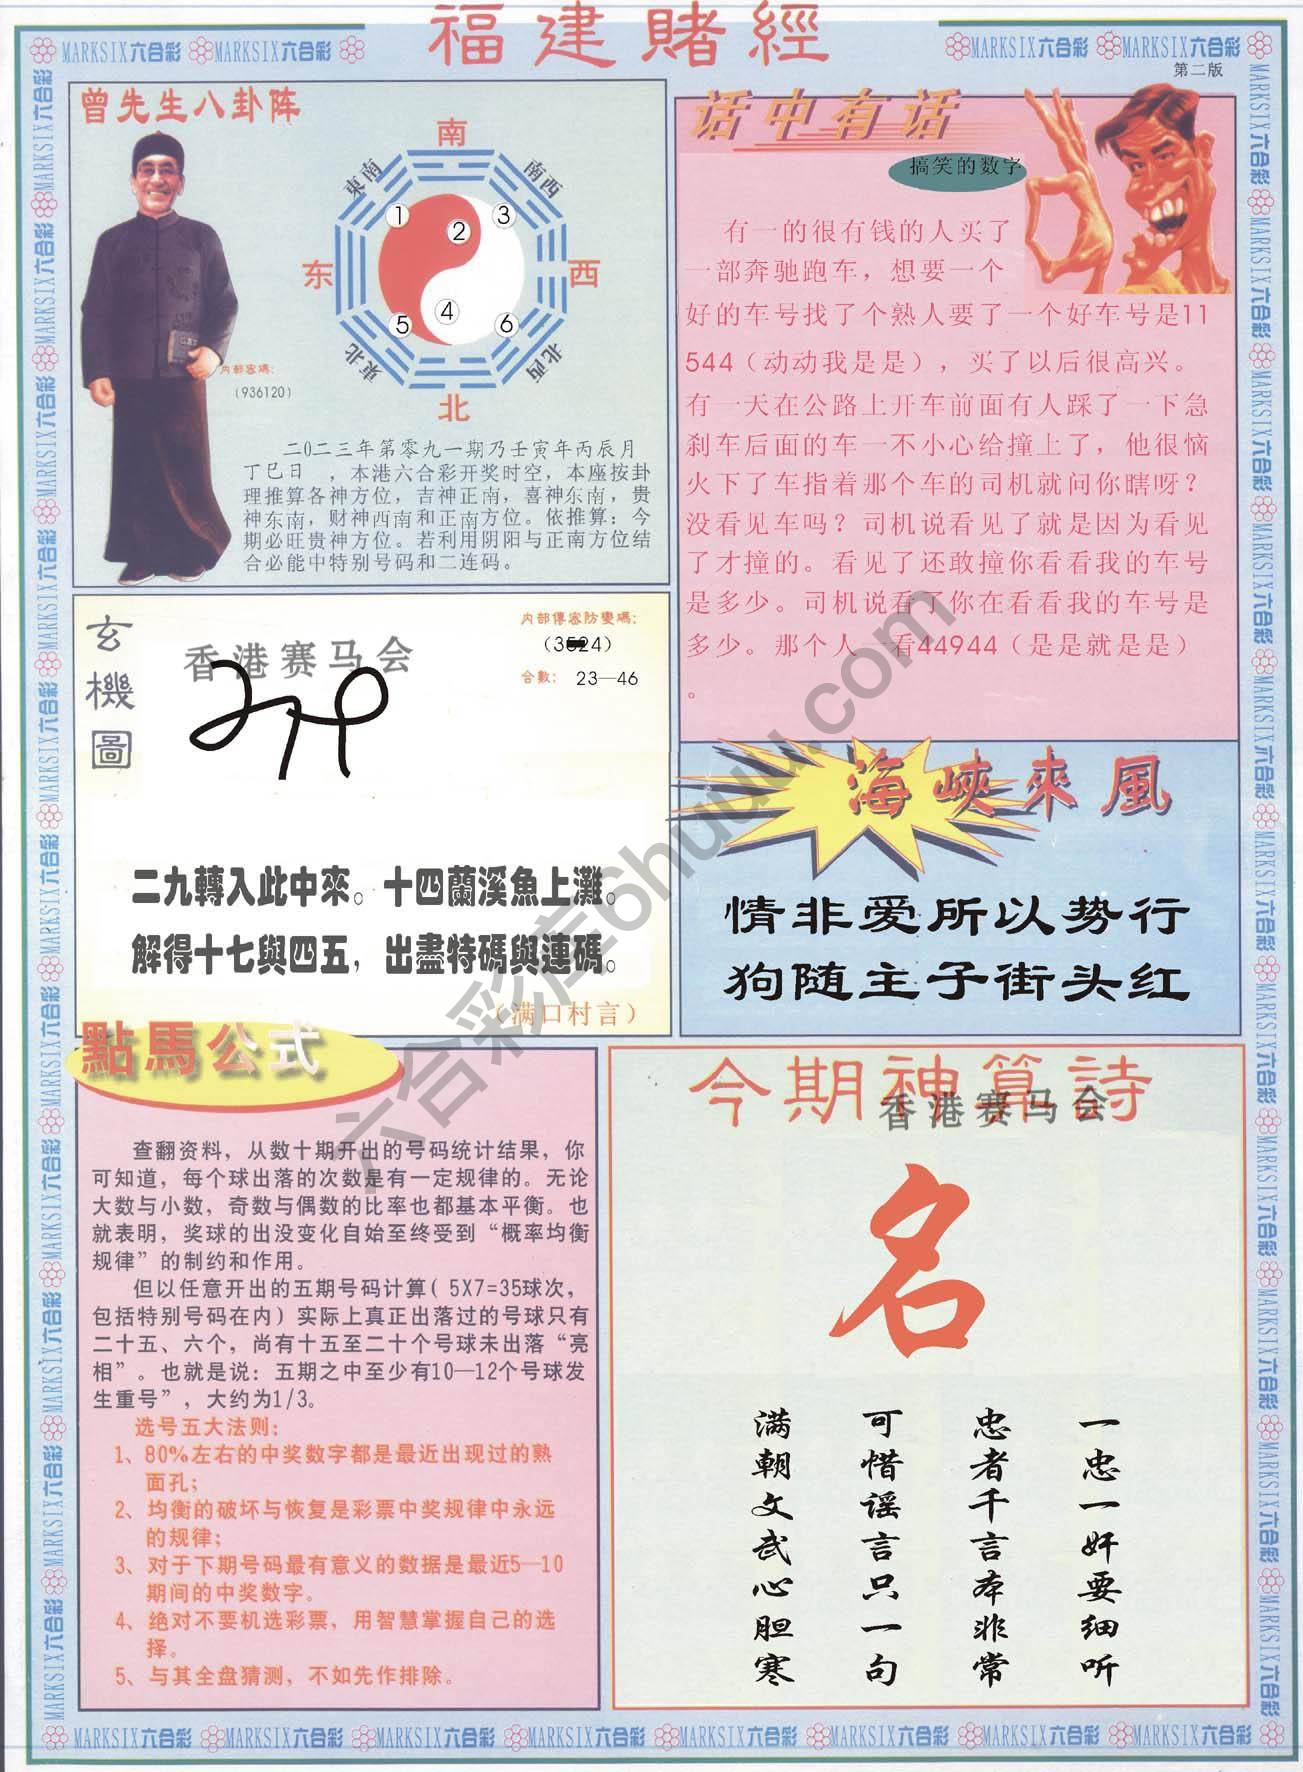 福建賭經
MARKSIX六合彩 MARKSIX六合彩
MARKSIX六合彩 MARKSIX六合彩
第二版
曾先生八卦阵
南
東南
南西
1
2
3
东
西
4
5
6
東北
北西
北
内部密碼:
(936120)
二0二三年第零九一期乃壬寅年丙辰月
丁巳日 ,本港六合彩开奖时空,本座按卦
理推算各神方位,吉神正南,喜神东南,贵
神东南,财神西南和正南方位。依推算:今
期必旺贵神方位。若利用阴阳与正南方位结
合必能中特别号码和二连码。
话中有话
搞笑的数字
有一的很有钱的人买了
一部奔驰跑车,想要一个
好的车号找了个熟人要了一个好车号是11
544(动动我是是),买了以后很高兴。
有一天在公路上开车前面有人踩了一下急
刹车后面的车一不小心给撞上了,他很恼
火下了车指着那个车的司机就问你瞎呀?
没看见车吗?司机说看见了就是因为看见
了才撞的。看见了还敢撞你看看我的车号
是多少。司机说看了你在看看我的车号是
多少。那个人一看44944(是是就是是)
。
玄機圖
香港赛马会
内部傳密防變碼:
(3524)
合數: 23—46
二九轉入此中來。十四蘭溪魚上灘。
解得十七與四五,出盡特碼與連碼。
(满口村言)
海峽來風
情非爱所以势行
狗随主子街头红
點馬公式
查翻资料,从数十期开出的号码统计结果,你
可知道,每个球出落的次数是有一定规律的。无论
大数与小数,奇数与偶数的比率也都基本平衡。也
就表明,奖球的出没变化自始至终受到“概率均衡
规律”的制约和作用。
但以任意开出的五期号码计算( 5X7=35球次,
包括特别号码在内)实际上真正出落过的号球只有
二十五、六个,尚有十五至二十个号球未出落“亮
相”。也就是说:五期之中至少有10—12个号球发
生重号”,大约为1/3。
选号五大法则:
1、80%左右的中奖数字都是最近出现过的熟
面孔;
2、均衡的破坏与恢复是彩票中奖规律中永远
的规律;
3、对于下期号码最有意义的数据是最近5—10
期间的中奖数字。
4、绝对不要机选彩票,用智慧掌握自己的选
择。
5、与其全盘猜测,不如先作排除。
今期神算詩
香港赛马会
名
一忠一奸要细听
忠者千言本非常
可惜谣言只一句
满朝文武心胆寒
六合彩库6huuu.com
MARKSIX六合彩 MARKSIX六合彩 MARKSIX六合彩 MARKSIX六合彩 MARKSIX六合彩 MARKSIX六合彩 MARKSIX六合彩 MARKSIX六合彩